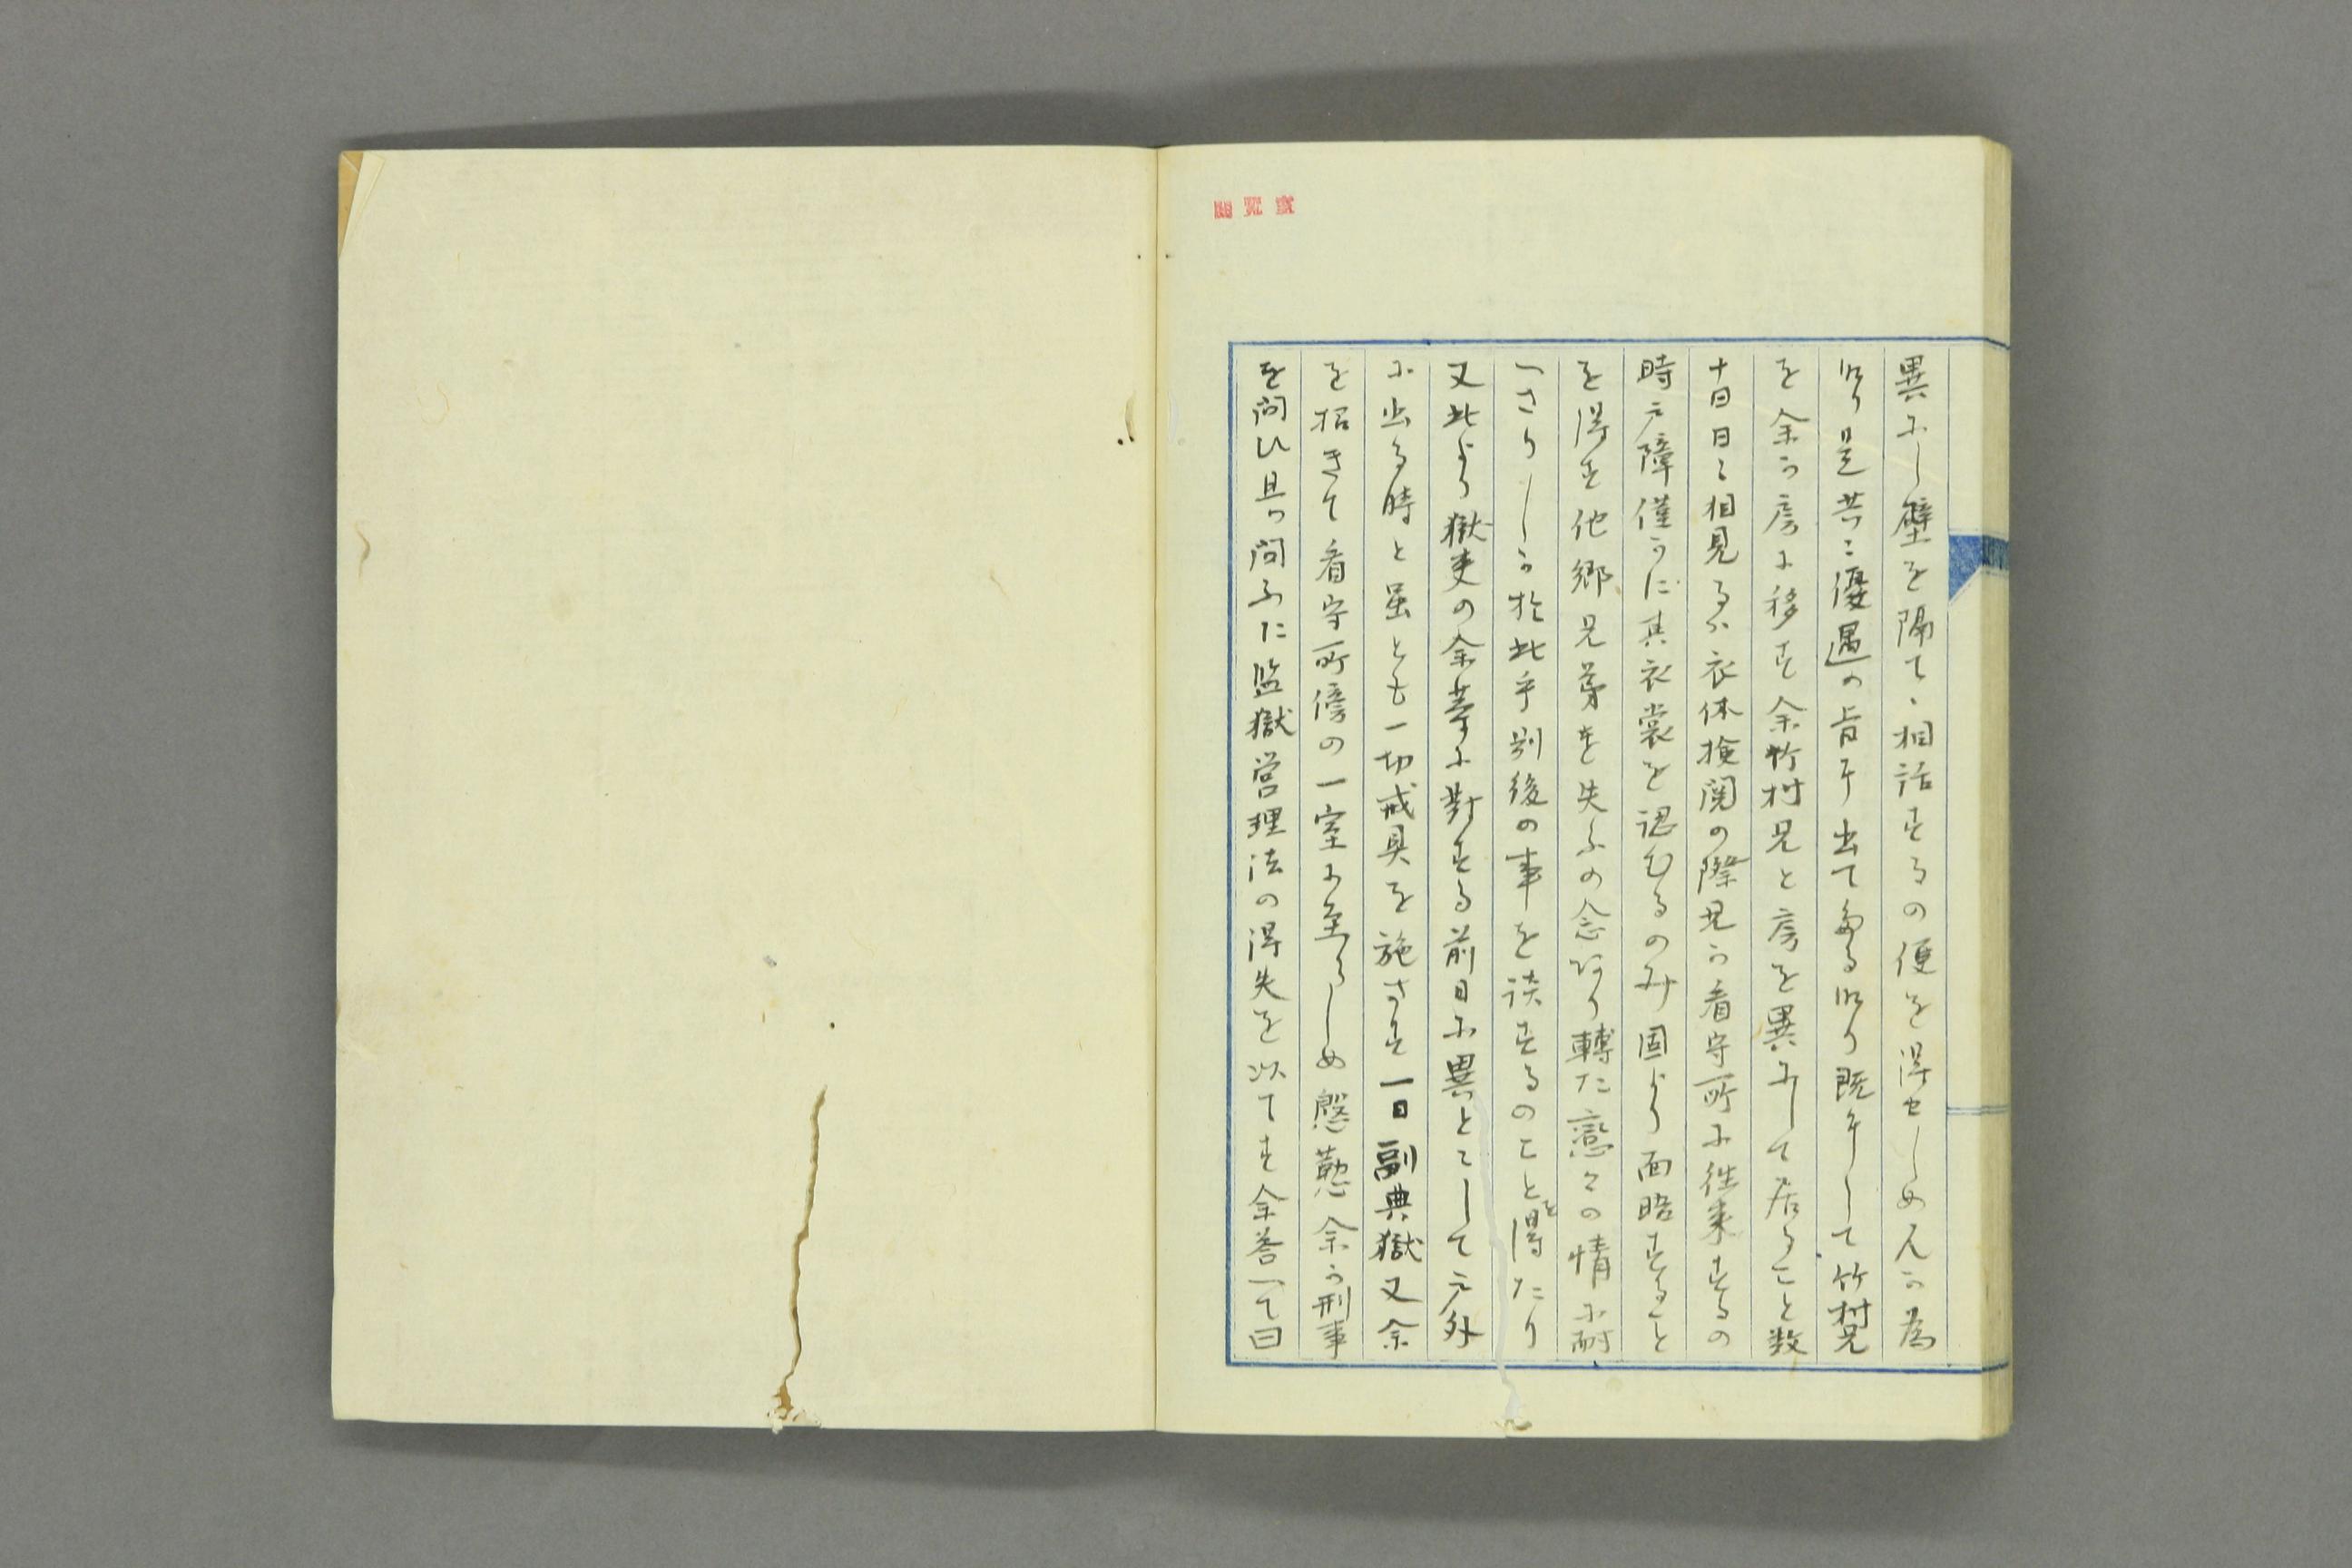 室覧閲
異にし壁を隔てゝ相話するの便を得せしめんか為
なり是共ニ優遇の旨に出てたるなり既にして竹村兄
を余か房に移す余竹村兄と房を異にして居ること数
十日日々相見るハ衣体検閲の際兄か看守所に往来するの
時戸障僅かに其衣裳を認むるのみ固より面晤すること
を得す他郷兄弟を失ふの念あり轉た戀々の情に耐
へさりしか於此乎別後の事を談するのことを得たり
又此より獄吏の余等に對する前日に異とにして戸外
に出る時と雖とも一切戒具を施さす一日副典獄又余
を招きて看守所傍の一室に至らしめ慇懃余か刑事
を問ひ且つ問ふに監獄営理法の得失を以てす余答へて曰